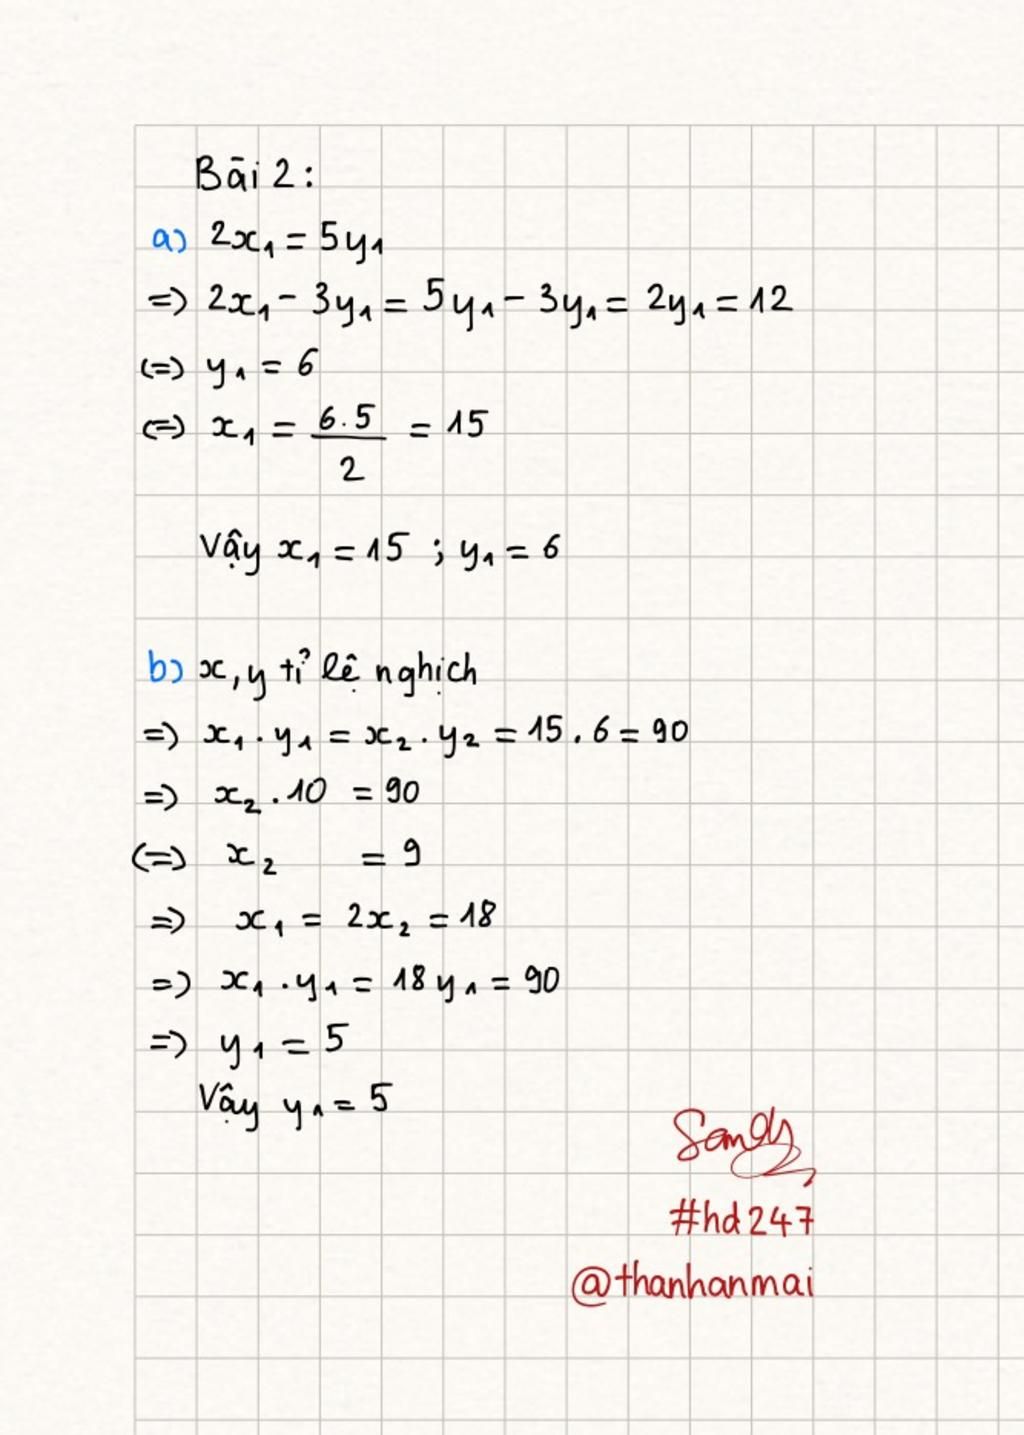 Bài 2:
a) 2x₁ = 5y₁
=> 2x₁ - 3y₁ = 5y₁ - 3y₁ = 2y₁ = 12
(=) y₁ = 6
(=) x₁ = 6.5/2 = 15
Vậy x₁ = 15 ; y₁ = 6
b) x, y tỉ lệ nghịch
=> x₁ . y₁ = x₂ . y₂ = 15 . 6 = 90
=> x₂ . 10 = 90
(=) x₂ = 9
=> x₁ = 2x₂ = 18
=> x₁ . y₁ = 18y₁ = 90
=> y₁ = 5
Vậy y₁ = 5
Sandy
#hd247
@thanhanmai